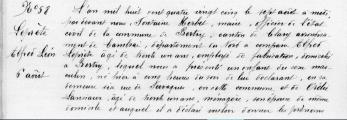 N° 58
Leprêtre
Alfred Léon
5 août
L'an mil huit cent quatre vingt cinq le sept août à midi
par devant nous Fontaine Herbet, maire, officier de l'état
civil de la commune de Bertry, canton de Clary arrondisse-
ment de Cambrai, département du Nord a comparu Alfred
Leprêtre âgé de trente un ans, employé de fabrication, domicilié
à Bertry, lequel nous a présenté un enfant du sexe mas-
culin, né hier à cinq heures du soir de lui déclarant, en sa
demeure en cette commune, et de
âgée de trente ans, ménagère, son épouse de même
domicile et auquel il a déclaré vouloir donner les prénoms